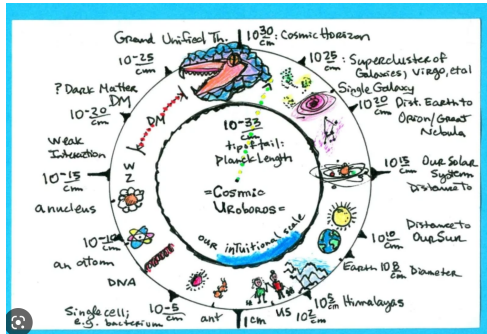 Ground Unified Th.
10^30 cm : Cosmic Horizon
10^25 cm : Supercluster of
Galaxies, Virgo, etal
Single Galaxy
10^20 cm Dist. Earth to
Orion/Great
Nebula
10^15 cm Our Solar
System
Distance to
Distance to
10^10 cm Our Sun
Earth 10^8 cm Diameter
10^5 cm Himalayas
10^2 cm
us
1cm
ant
10^-5 cm
Single cell;
e.g. bacterium
DNA
an atom
10^-10 cm
a nucleus
10^-15 cm
Weak
Interaction
W
Z
10^-20 cm
? Dark Matter
DM
DM
10^-25 cm
10^-33 cm
tip of tail:
Planck Length
=Cosmic
Uroboros=
our intuitional scale